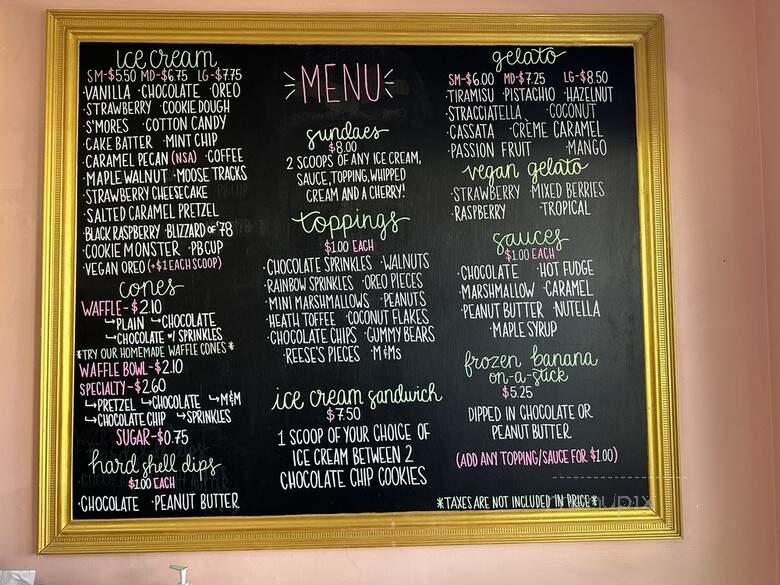 ice cream
SM-$5.50 MD-$6.75 LG-$7.75
·VANILLA ·CHOCOLATE ·OREO
·STRAWBERRY ·COOKIE DOUGH
·S'MORES ·COTTON CANDY
·CAKE BATTER ·MINT CHIP
·CARAMEL PECAN (NSA) ·COFFEE
·MAPLE WALNUT ·MOOSE TRACKS
·STRAWBERRY CHEESECAKE
·SALTED CARAMEL PRETZEL
·BLACK RASPBERRY ·BLIZZARD OF '78
·COOKIE MONSTER ·PB CUP
·VEGAN OREO (+$1 EACH SCOOP)
cones
WAFFLE-$2.10
↳PLAIN ↳CHOCOLATE
↳CHOCOLATE w/ SPRINKLES
*TRY OUR HOMEMADE WAFFLE CONES*
WAFFLE BOWL-$2.10
SPECIALTY-$2.60
↳PRETZEL ↳CHOCOLATE ↳M&M
↳CHOCOLATE CHIP ↳SPRINKLES
SUGAR-$0.75
hard shell dips
$1.00 EACH
·CHOCOLATE ·PEANUT BUTTER
MENU
sundaes
$8.00
2 SCOOPS OF ANY ICE CREAM,
SAUCE, TOPPING, WHIPPED
CREAM AND A CHERRY!
toppings
$1.00 EACH
·CHOCOLATE SPRINKLES ·WALNUTS
·RAINBOW SPRINKLES ·OREO PIECES
·MINI MARSHMALLOWS ·PEANUTS
·HEATH TOFFEE ·COCONUT FLAKES
·CHOCOLATE CHIPS ·GUMMY BEARS
·REESE'S PIECES ·M&Ms
ice cream sandwich
$7.50
1 SCOOP OF YOUR CHOICE OF
ICE CREAM BETWEEN 2
CHOCOLATE CHIP COOKIES
gelato
SM-$6.00 MD-$7.25 LG-$8.50
·TIRAMISU ·PISTACHIO ·HAZELNUT
·STRACCIATELLA ·COCONUT
·CASSATA ·CRÈME CARAMEL
·PASSION FRUIT ·MANGO
vegan gelato
·STRAWBERRY ·MIXED BERRIES
·RASPBERRY ·TROPICAL
sauces
$1.00 EACH
·CHOCOLATE ·HOT FUDGE
·MARSHMALLOW ·CARAMEL
·PEANUT BUTTER ·NUTELLA
·MAPLE SYRUP
frozen banana
on-a-stick
$5.25
DIPPED IN CHOCOLATE OR
PEANUT BUTTER
(ADD ANY TOPPING/SAUCE FOR $1.00)
*TAXES ARE NOT INCLUDED IN PRICE*